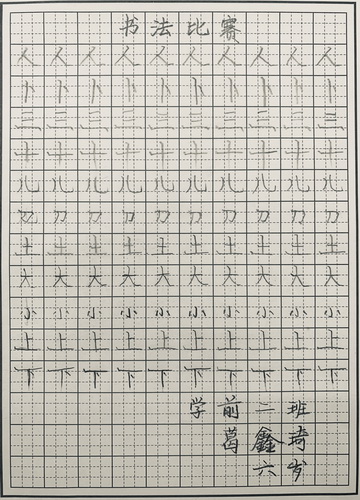 书法比赛
人人人人人人人人人人
卜卜卜卜卜卜卜卜卜卜
三三三三三三三三三三
十十十十十十十十十十
儿儿儿儿儿儿儿儿儿儿
刀刀刀刀刀刀刀刀刀刀
土土土土土土土土土土
大大大大大大大大大大
小小小小小小小小小小
上上上上上上上上上上
下下下下下下下下下下
学前二班
葛鑫琦
六岁